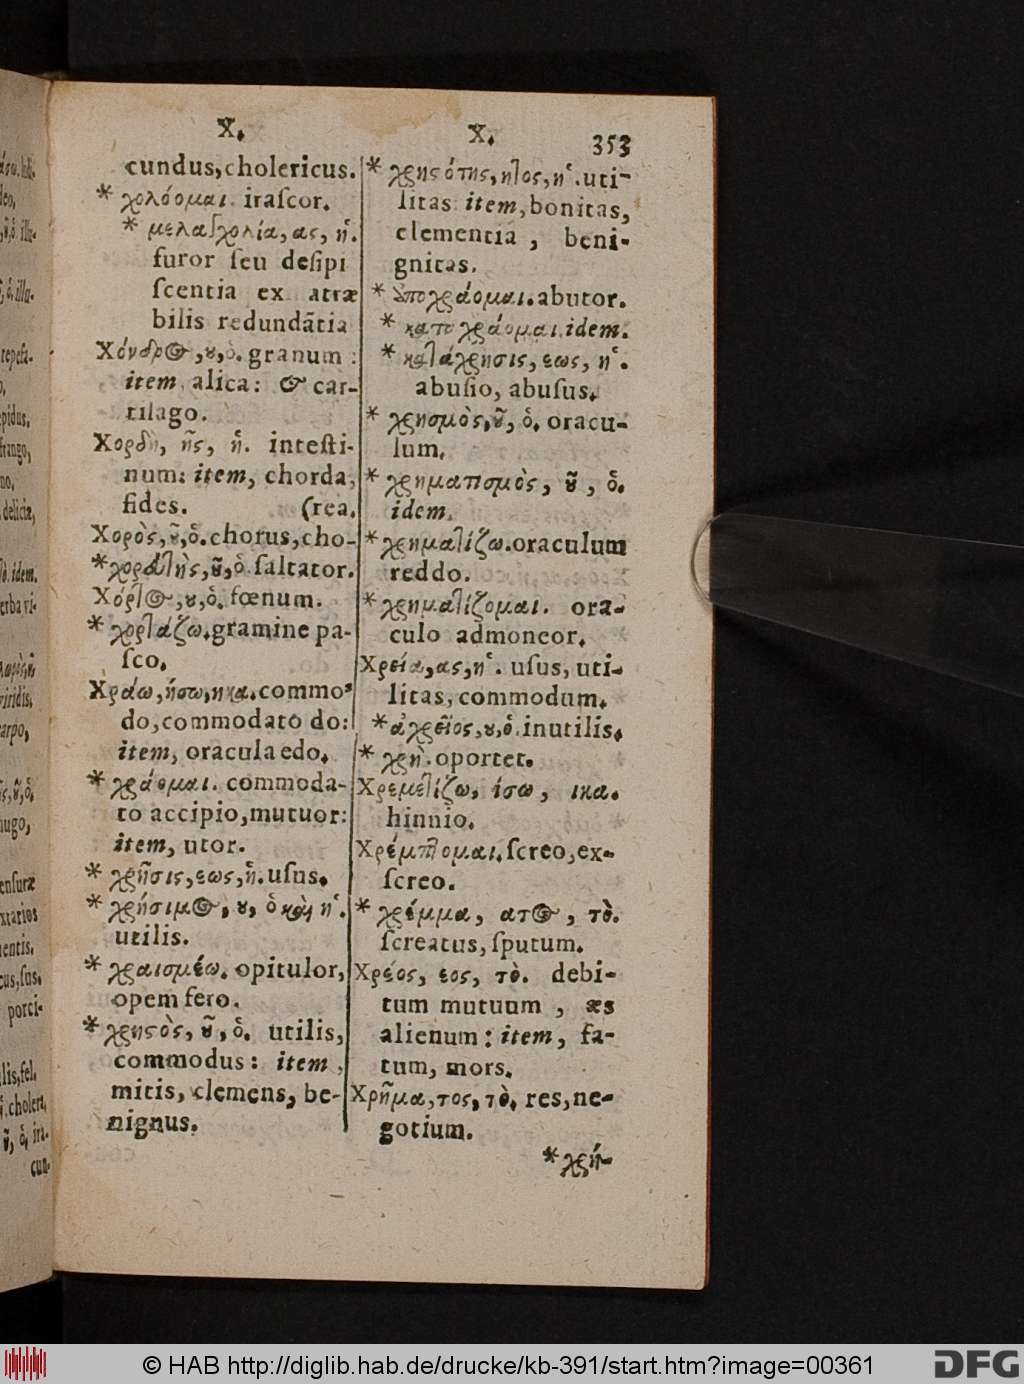 X.
cundus, cholericus.
* χολόομαι. iraſcor.
* μελαγχολία, ας, ἡ.
furor ſeu deſipi
ſcentia ex atræ
bilis redundãtia
Χόνδρος, ȣ, ὁ. granum:
item, alica: & car-
tilago.
Χορδὴ, ῆς, ἡ. inteſti-
num: item, chorda,
fides. (rea.
Χορὸς, ȣ͂, ὁ. chorus, cho-
* χορευτὴς, ȣ͂, ὁ. ſaltator.
Χόρτος, ȣ, ὁ. fœnum.
* χορτάζω. gramine pa-
ſco.
Χράω, ήσω, ηκα. commo-
do, commodato do:
item, oracula edo.
* χράομαι. commoda-
to accipio, mutuor:
item, utor.
* χρῆσις, εως, ἡ. uſus.
* χρήσιμος, ȣ, ὁ καὶ ἡ.
utilis.
* χραισμέω. opitulor,
opem fero.
* χρηστὸς, ȣ͂, ὁ. utilis,
commodus: item,
mitis, clemens, be-
nignus.
X. 353
* χρηστότης, ητος, ἡ. uti-
litas: item, bonitas,
clementia, beni-
gnitas.
* ἀποχράομαι. abutor.
* καταχράομαι. idem.
* κατάχρησις, εως, ἡ.
abuſio, abuſus.
* χρησμὸς, ȣ͂, ὁ. oracu-
lum.
* χρηματισμὸς, ȣ͂, ὁ.
idem.
* χρηματίζω. oraculum
reddo.
* χρηματίζομαι. ora-
culo admoneor.
Χρεία, ας, ἡ. uſus, uti-
litas, commodum.
* ἀχρεῖος, ȣ, ὁ. inutilis.
* χρὴ. oportet.
Χρεμετίζω, ίσω, ικα.
hinnio.
Χρέμπτομαι. ſcreo, ex-
ſcreo.
* χρέμμα, ατος, τὸ.
ſcreatus, ſputum.
Χρέος, εος, τὸ. debi-
tum mutuum, æs
alienum: item, fa-
tum, mors.
Χρῆμα, τος, τὸ. res, ne-
gotium.
* χρή-
© HAB http://diglib.hab.de/drucke/kb-391/start.htm?image=00361
DFG